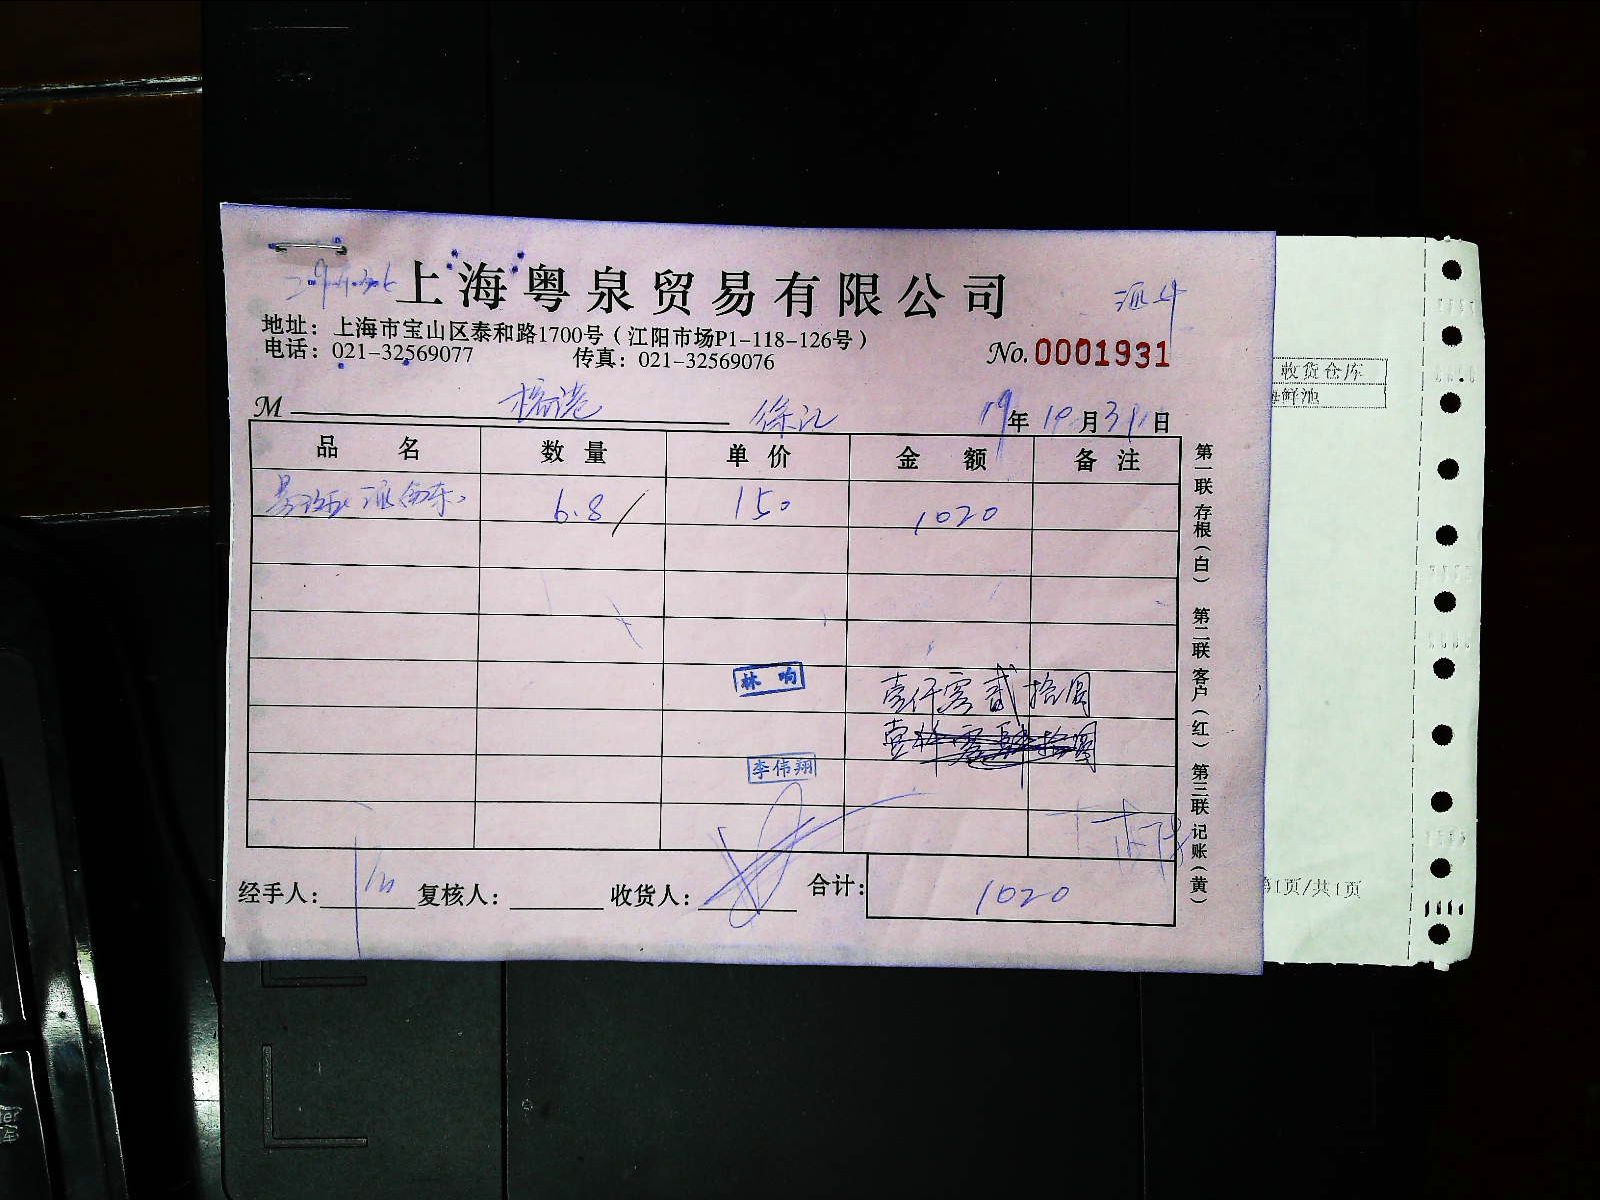 上海粤泉贸易有限公司
地址：上海市宝山区泰和路1700号（江阳市场P1-118-126号）
电话：021-32569077 传真：021-32569076
No. 0001931
M 徐汇 19年10月31日
品名 数量 单价 金额 备注
6.8 150 1020
林响
壹仟零贰拾圆
李伟翔
经手人： 复核人： 收货人： 合计： 1020
第一联 存根（白） 第二联 客户（红） 第三联 记账（黄）
收货仓库
海鲜池
第1页/共1页